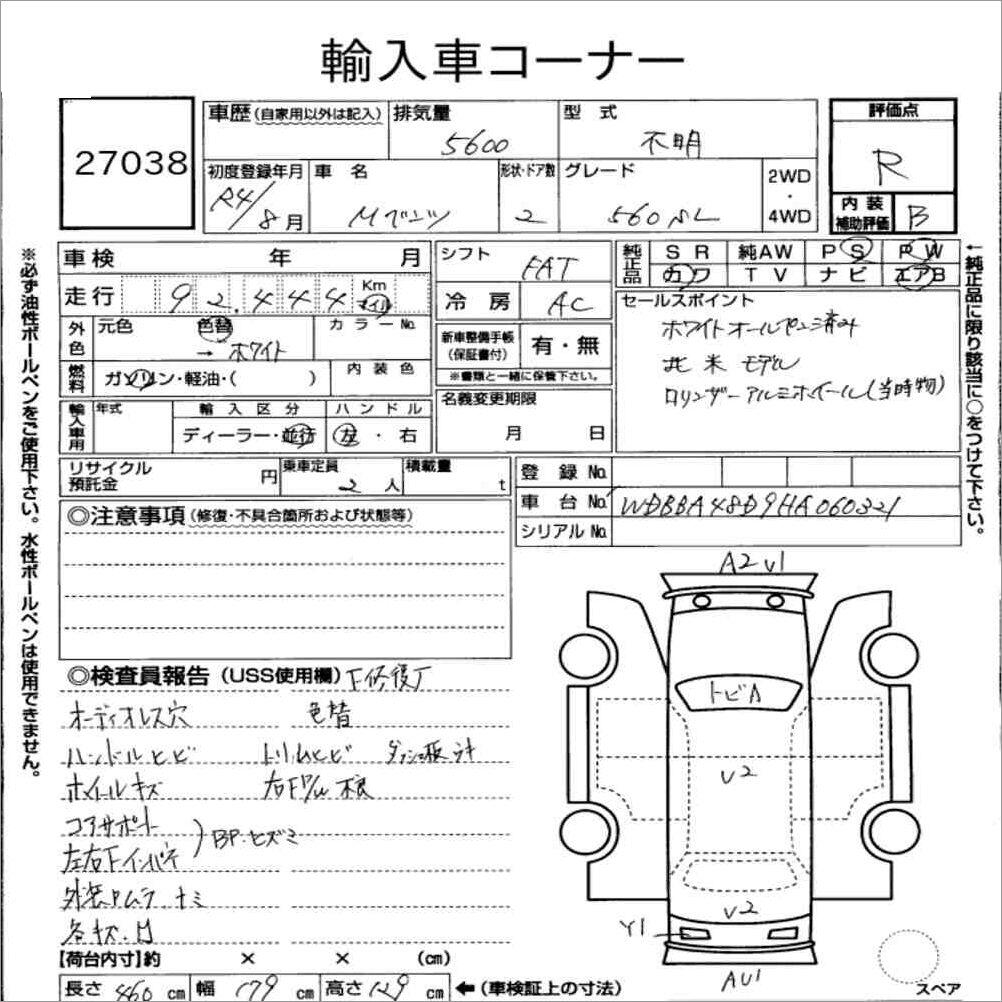 輸入車コーナー
27038
車歴(自家用以外は記入)
排気量
5600
型 式
不明
評価点
R
初度登録年月
R4/8月
車 名
Mベンツ
形状・ドア数
2
グレード
560SL
2WD
・
4WD
内 装
補助評価
B
※必ず油性ボールペンをご使用下さい。水性ボールペンは使用できません。
車検 年 月
シフト
FAT
純正品
SR 純AW PS PW
カワ TV ナビ エアB
←純正品に限り該当に○をつけて下さい。
走行 92,444 Km マイル
冷 房
AC
セールスポイント
ホワイトオールペン済み
北米モデル
ロリンザーアルミホイール(当時物)
外色
元色
色替
→ ホワイト
カラーNo.
新車整備手帳
(保証書付)
有・無
※書類と一緒に保管下さい。
燃料
ガソリン・軽油・( )
内 装 色
名義変更期限
月 日
輸入車用
年式
輸 入 区 分
ディーラー・並行
ハ ン ド ル
左・右
リサイクル
預託金
円
乗車定員
2人
積載量
t
登 録 No.
車 台 No.
WDBBA48D9HA060321
シリアル No.
◎注意事項(修復・不具合箇所および状態等)
◎検査員報告(USS使用欄)
下修復丁
オーディオレス穴 色替
ハンドルヒビ トリムヒビ ダッシュ板ヨキ
ホイールキズ
コアサポート
左右Fインパネ
BP・ヒズミ
外装ムラ ナミ
各キズ・凹
A2 V1
トビA
V2
V2
Y1
AU1
スペア
【荷台内寸】約 × × (cm)
長さ 460 cm 幅 179 cm 高さ 129 cm ←(車検証上の寸法)